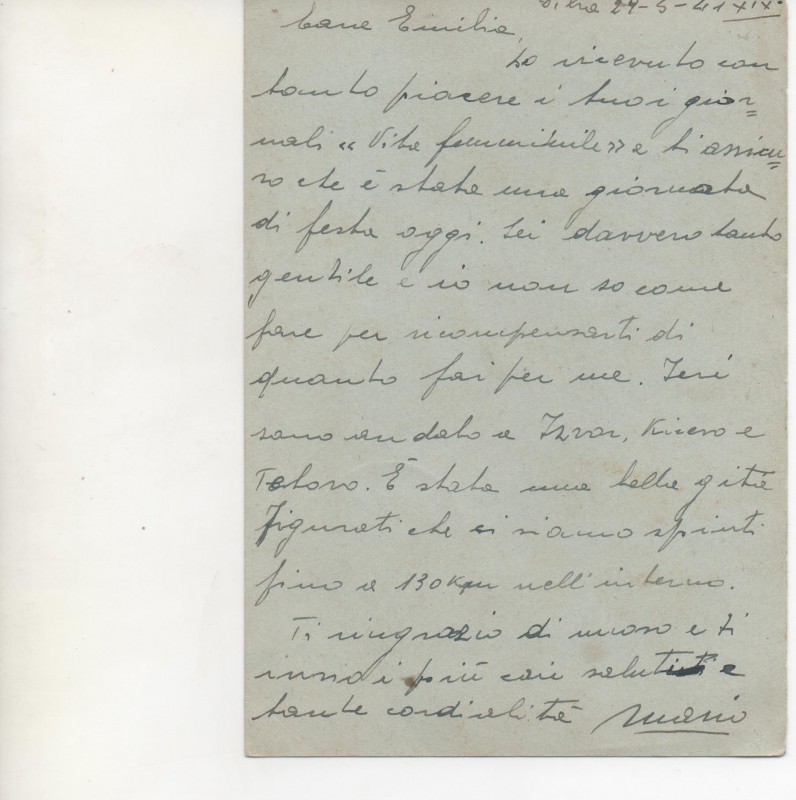 Dibra 29-5-41 XIX°
Cara Emilia,
ho ricevuto con
tanto piacere i tuoi gior=
nali « Vita femminile » e ti assicu=
ro che è stata una giornata
di festa oggi. Sei davvero tanto
gentile e io non so come
fare per ricompensarti di
quanto fai per me. Ieri
sono andato a Izvor, Kicevo e
Tetovo. È stata una bella gita
Figurati che ci siamo spinti
fino a 130 km nell'interno.
Ti ringrazio di nuovo e ti
invio i più cari saluti e
tante cordialità Mario